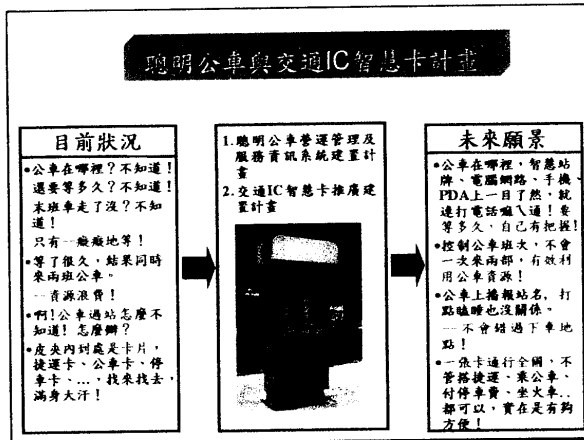 聰明公車與交通IC智慧卡計畫
目前狀況
•公車在哪裡？不知道！
還要等多久？不知道！
末班車走了沒？不知
道！
只有一癡癡地等！
•等了很久，結果同時
來兩班公車。
—資源浪費！
•啊！公車過站怎麼不
知道！怎麼辦？
•皮夾內到處是卡片，
捷運卡、公車卡、停
車卡、…，找來找去，
滿身大汗！
1.聰明公車營運管理及
服務資訊系統建置計
畫
2.交通IC智慧卡推廣建
置計畫
未來願景
•公車在哪裡，智慧站
牌、電腦網路、手機、
PDA上一目了然，就
連打電話嘛ㄟ通！要
等多久，自己有把握！
•控制公車班次，不會
一次來兩部，有效利
用公車資源！
•公車上播報站名，打
點瞌睡也沒關係。
—不會錯過下車地
點！
•一張卡通行全國，不
管搭捷運、乘公車、
付停車費、坐火車..
都可以，實在是有夠
方便！